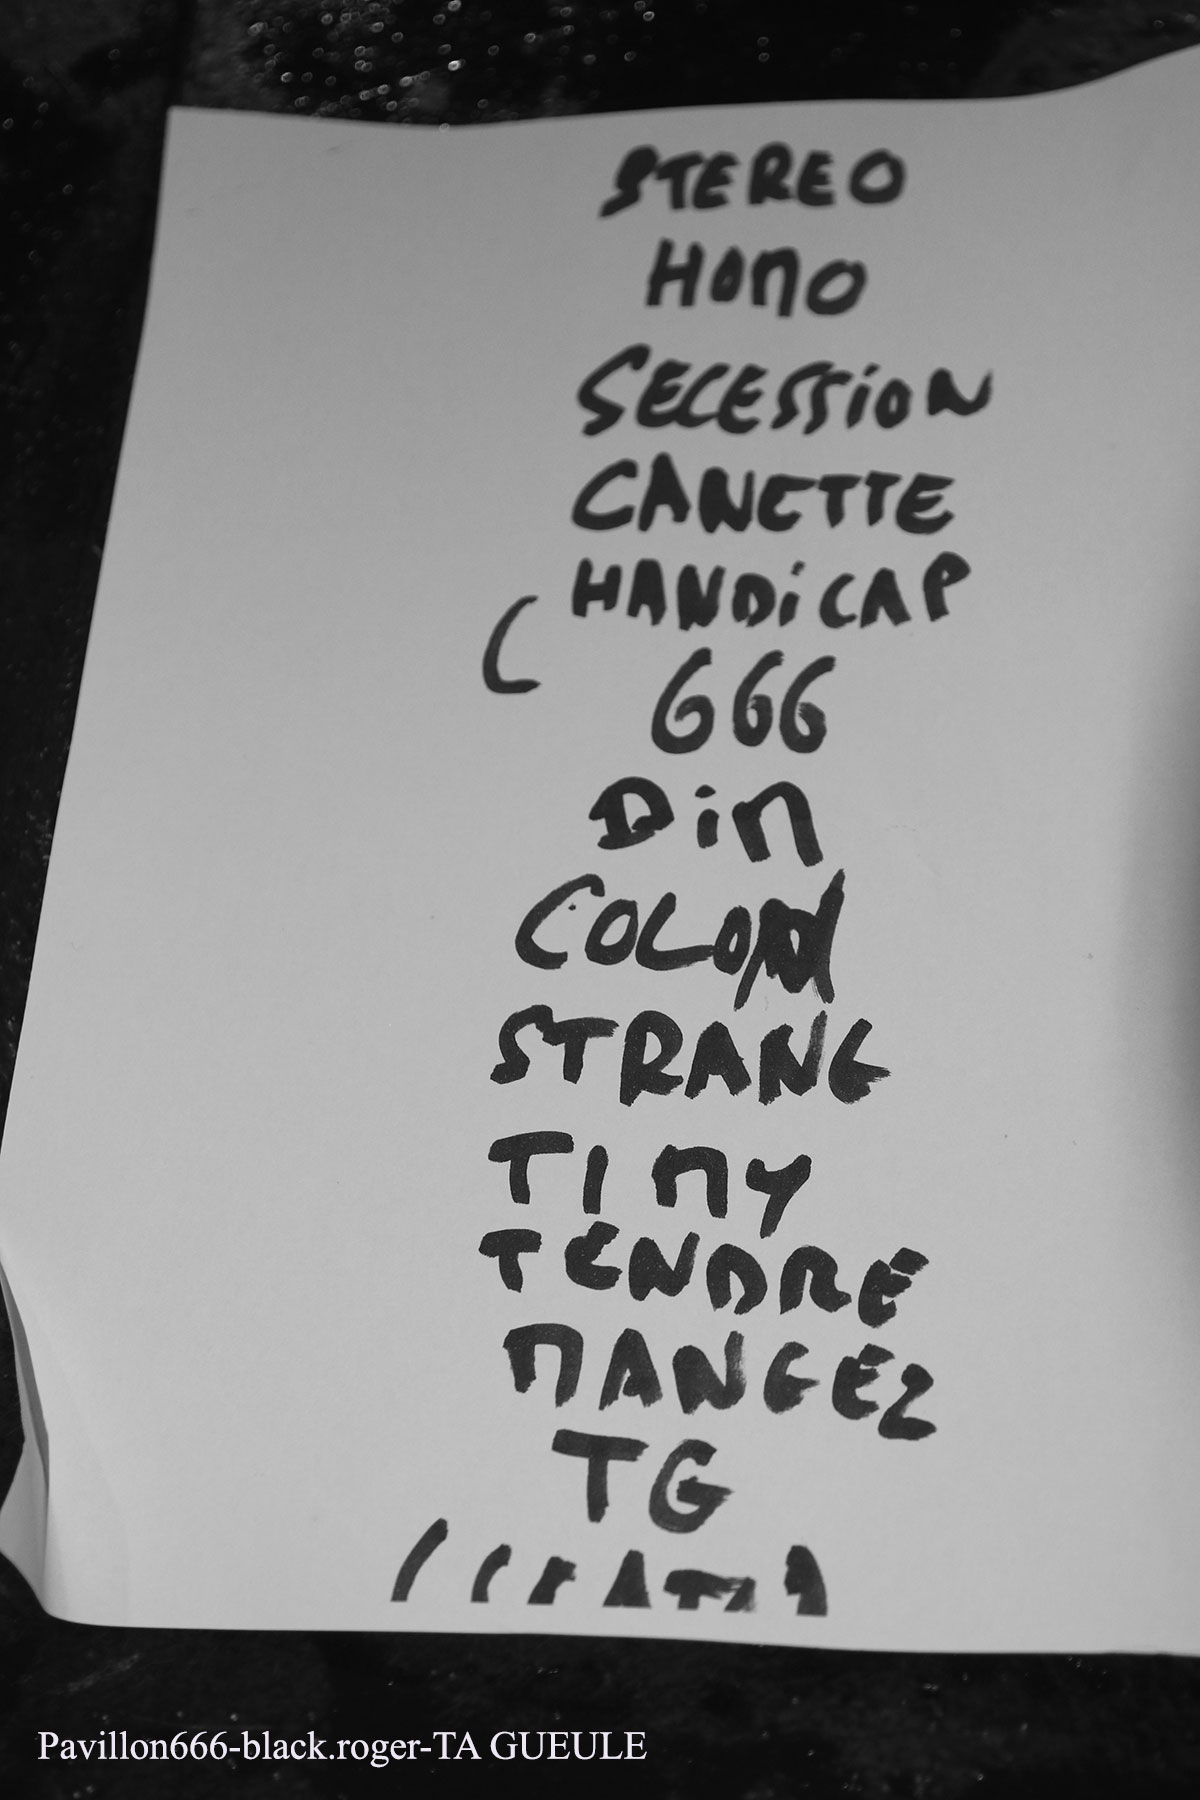 STEREO
HOMO
SECESSION
CANETTE
HANDiCAP
( 666
DiM
STRANG
TIMY
TENDRE
MANGEZ
TG
Pavillon666-black.roger-TA GUEULE